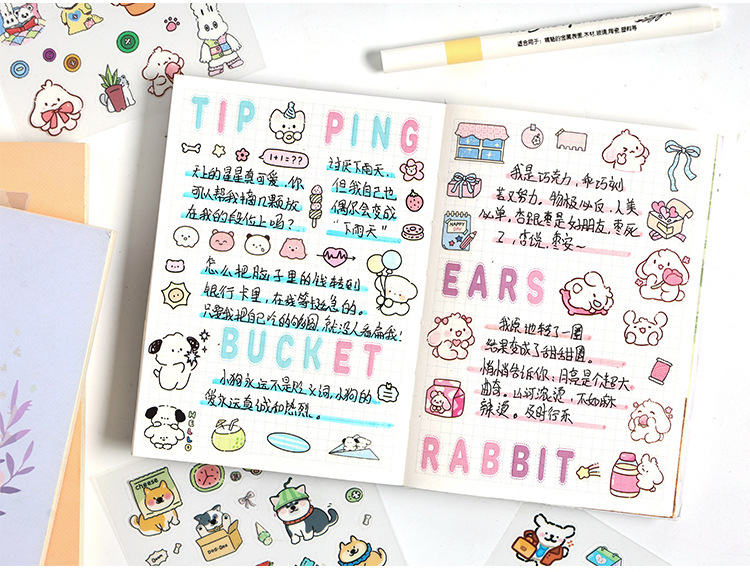 适合用于: 金属表面,木材,玻璃,陶瓷,塑料等
TIP PING
1+1=??
天上的星星真可爱,你
可以帮我摘几颗放
在我的段位上吗?
讨厌下雨天,
但我自己也
偶尔会变成
“下雨天”
怎么把脑子里的钱转到
银行卡里,在线等挺急的。
只要我把自己吃的够圆,就没人看扁我!
BUCKET
小狗永远不是贬义词,小狗的
爱永远真诚和热烈。
HELLO
我是巧克力,乖巧刻
苦又努力。物极必反,人美
必单。李跟枣是好朋友,枣死
了,李说,枣安~
HAPPY
DAY
EARS
我原地转了一圈
结果变成了甜甜圈。
悄悄告诉你:月亮是个超大
曲奇。山河滚烫,不如麻
辣烫。及时行乐
RABBIT
cheese